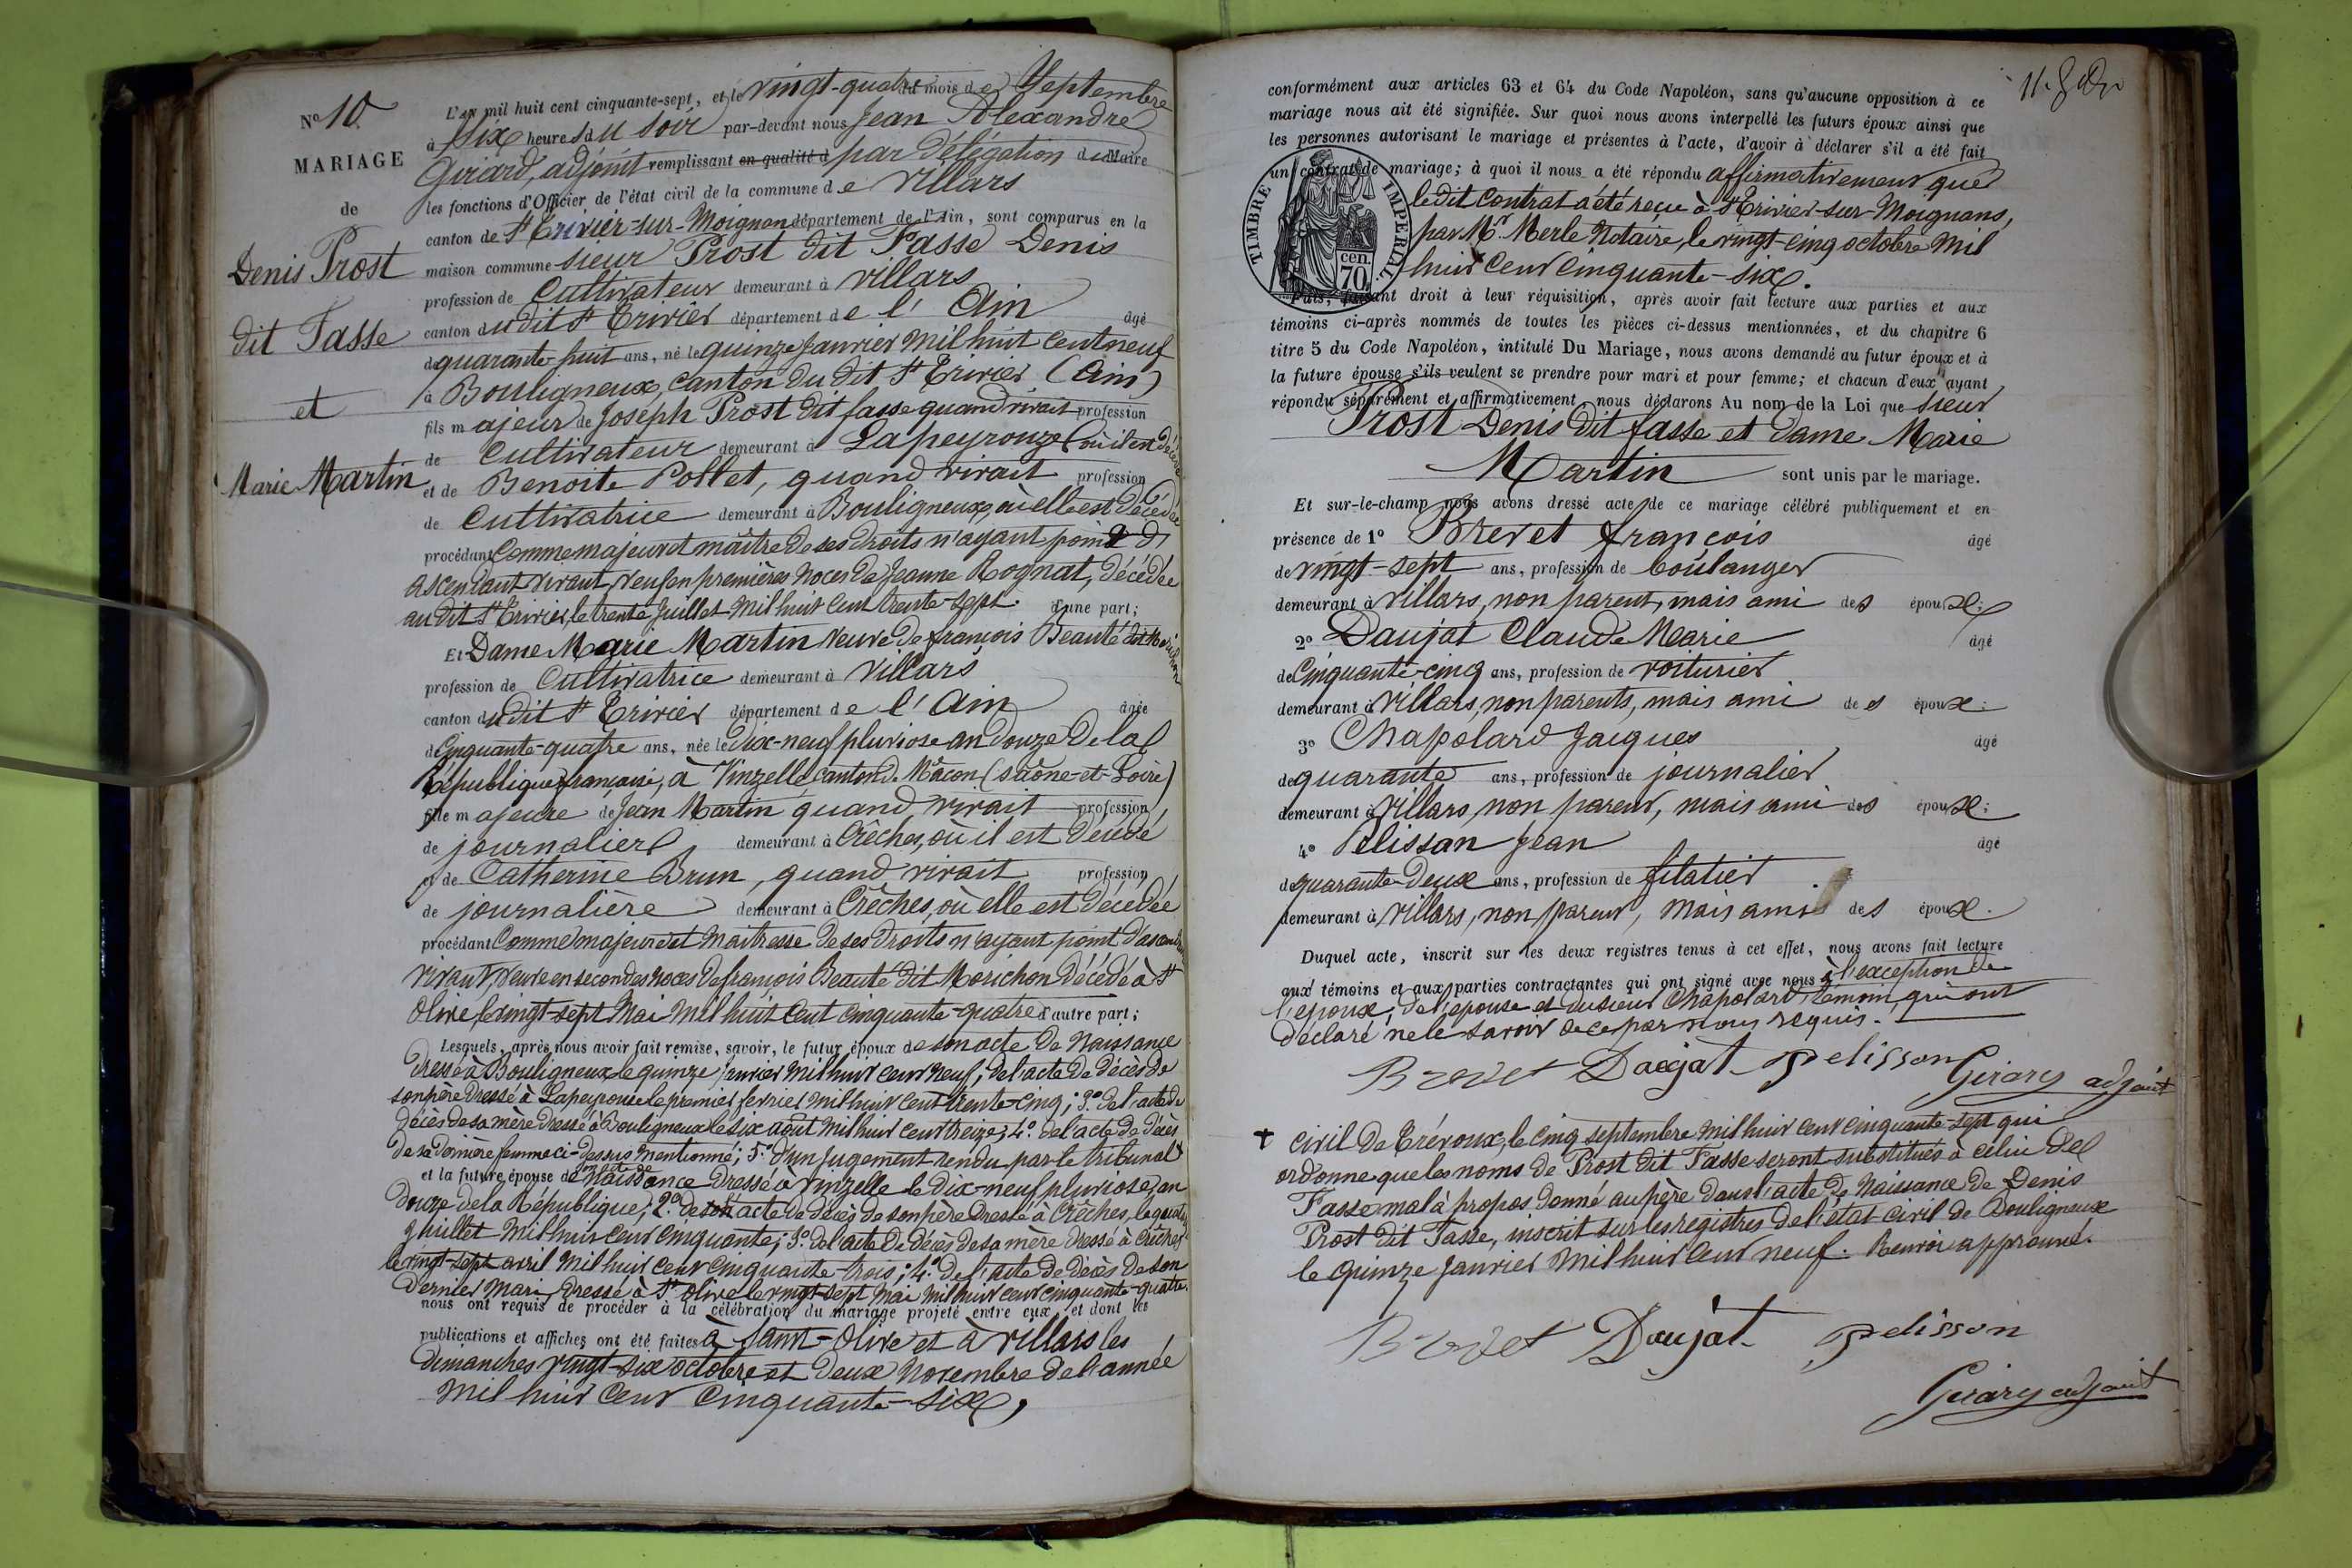 N° 10
MARIAGE
de
Denis Prost
dit Fasse
et
Marie Martin
L'an mil huit cent cinquante-sept, et le vingt-quatre du mois de Septembre
à six heures du soir par-devant nous Jean Alexandre
Girard, adjoint remplissant en qualité d par délégation du Maire
les fonctions d'Officier de l'état civil de la commune de Villars
canton de St Trivier-sur-Moignans département de l'Ain, sont comparus en la
maison commune sieur Prost dit Fasse Denis
profession de Cultivateur demeurant à Villars
canton du dit St Trivier département de l'Ain âgé
de quarante-huit ans, né le quinze Janvier mil huit cent neuf
à Bouligneux, canton du dit St Trivier (Ain)
fils majeur de Joseph Prost dit fasse quand vivait profession
de Cultivateur demeurant à Lapeyrouze où il en décédé
et de Benoite Pollet, quand vivait profession
de Cultivatrice demeurant à Bouligneux, où elle est décédée
procédant Comme majeur et maître de ses droits n'ayant point d'
ascendant vivant, veuf en premières noces de Jeanne Rognat, décédée
au dit St Trivier, le trente Juillet mil huit cent trente-sept. d'une part;
Et Dame Marie Martin Veuve de françois Beauté dit Morichon
profession de Cultivatrice demeurant à Villars
canton du dit St Trivier département de l'Ain âgée
de Cinquante-quatre ans, née le dix-neuf pluviose an douze de la
République française, à Vinzelle, canton de Mâcon (Saône-et-Loire)
fille majeure de Jean Martin quand vivait profession
de journalier demeurant à Crêches, où il est décédé
et de Catherine Brun, quand vivait profession
de journalière demeurant à Crêches, où elle est décédée
procédant Comme majeure et maitresse de ses droits n'ayant point d'ascendant
vivant, veuve en secondes noces de françois Beauté dit Morichon décédé à St
Olive, le vingt-sept Mai mil huit cent cinquante-quatre d'autre part;
Lesquels, après nous avoir fait remise, savoir, le futur époux de son acte de Naissance
dressé à Bouligneux le quinze janvier mil huit cent neuf; de l'acte de décès de
son père dressé à Lapeyrouse le premier fevrier mil huit cent trente-cinq; 3° de l'acte de
décès de sa mère dressé à Bouligneux le six août mil huit cent treize; 4° de l'acte de décès
de sa dernière femme ci-dessus mentionné; 5° d'un jugement rendu par le tribunal +
et la future épouse de son acte de Naissance dressé à Vinzelle le dix-neuf pluviose, an
douze de la République; 2° de son acte de décès de son père dressé à Crêches, le quatre
Juillet mil huit cent cinquante; 3° de l'acte de décès de sa mère dressé à Crêches
le vingt-sept avril mil huit cent cinquante-trois; 4° de l'acte de décès de son
dernier mari, dressé à St Olive le vingt-sept Mai mil huit cent cinquante-quatre.
nous ont requis de procéder à la célébration du mariage projeté entre eux et dont les
publications et affiches ont été faites à Saint-Olive et à Villars les
dimanches vingt-six octobre et deux Novembre de l'année
mil huit cent cinquante-six,
conformément aux articles 63 et 64 du Code Napoléon, sans qu'aucune opposition à ce
mariage nous ait été signifiée. Sur quoi nous avons interpellé les futurs époux ainsi que
les personnes autorisant le mariage et présentes à l'acte, d'avoir à déclarer s'il a été fait
un contrat de mariage; à quoi il nous a été répondu affirmativement que
le dit Contrat a été reçu à St Trivier-sur-Moignans,
par Me Merle Notaire, le vingt-cinq octobre mil
huit cent cinquante-six.
TIMBRE IMPERIAL
70 cen.
Puis, faisant droit à leur réquisition, après avoir fait lecture aux parties et aux
témoins ci-après nommés de toutes les pièces ci-dessus mentionnées, et du chapitre 6
titre 5 du Code Napoléon, intitulé Du Mariage, nous avons demandé au futur époux et à
la future épouse s'ils veulent se prendre pour mari et pour femme; et chacun d'eux ayant
répondu séparément et affirmativement, nous déclarons Au nom de la Loi que sieur
Prost Denis dit fasse et dame Marie
Martin sont unis par le mariage.
Et sur-le-champ nous avons dressé acte de ce mariage célébré publiquement et en
présence de 1° Brevet françois âgé
de vingt-sept ans, profession de boulanger
demeurant à Villars, non parent, mais ami des époux;
2° Daujat Claude Marie âgé
de Cinquante-cinq ans, profession de voiturier
demeurant à Villars, non parents, mais ami des époux:
3° Chapolard Jacques âgé
de quarante ans, profession de journalier
demeurant à Villars, non parent, mais ami des époux:
4° Pélisson Jean âgé
de quarante-deux ans, profession de filatier
demeurant à Villars, non parent, mais ami des époux.
Duquel acte, inscrit sur les deux registres tenus à cet effet, nous avons fait lecture
aux témoins et aux parties contractantes qui ont signé avec nous à l'exception de
l'époux, de l'épouse et du sieur Chapolard, témoin, qui ont
déclaré ne le savoir de ce par nous requis.
Brevet Daujat pelisson Girard adjoint
+ civil de Trévoux, le cinq septembre mil huit cent cinquante-sept qui
ordonne que les noms de Prost dit Fasse seront substitués à celui de
Fasse mal à propos donné au père dans l'acte de Naissance de Denis
Prost dit Fasse, inscrit sur les registres de l'état-civil de Bouligneux
le quinze Janvier mil huit cent neuf. Renvoi approuvé.
Brevet Daujat pelisson
Girard adjoint